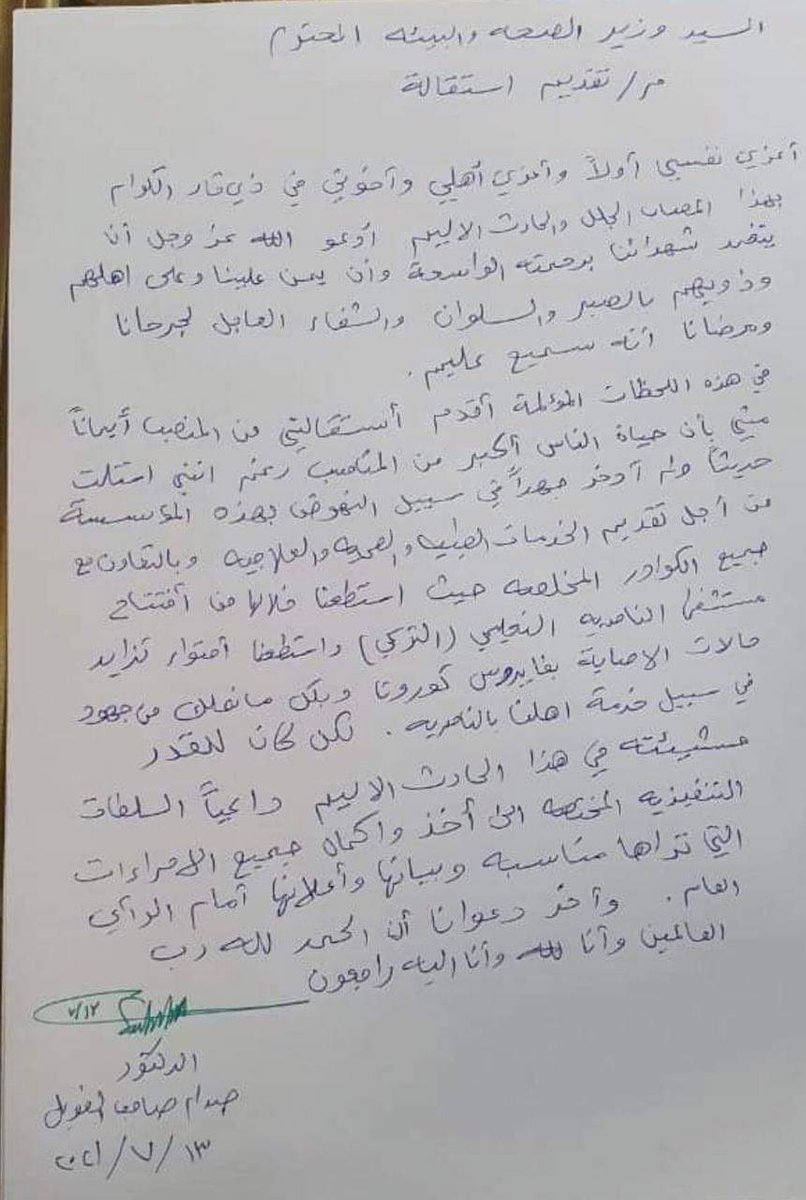 السيد وزير الصحه والبيئه المحترم
م / تقديم استقالة
أعزي نفسي أولاً وأعزي أهلي وأخوتي في ذي قار الكرام
بهذا المصاب الجلل والحادث الاليم أدعو الله عز وجل أن
يتغمد شهدائنا برحمته الواسعة وأن يمن علينا وعلى اهلهم
وذويهم بالصبر والسلوان والشفاء العاجل لجرحانا
ومرضانا أنه سميع عليم .
في هذه اللحظات المؤلمة أقدم أستقالتي من المنصب أيماناً
مني بأن حياة الناس أكبر من المناصب رغم انني استلمت
حديثاً ولم أدخر جهداً في سبيل النهوض بهذه المؤسسة
من أجل تقديم الخدمات الطبيه والصحيه والعلاجيه وبالتعاون مع
جميع الكوادر المخلصه حيث استطعنا خلالها من أفتتاح
مستشفى الناصريه التعليمي (التركي) واستطعنا أحتواء تزايد
حالات الاصابة بفايروس كورونا وبكل مانملك من جهود
في سبيل خدمة اهلنا بالناصريه . لكن كان للقدر
مشيئته في هذا الحادث الاليم داعياً السلطات
التنفيذيه المختصه الى أخذ واكمال جميع الاجراءات
التي تراها مناسبه وبيانها وأعلانها أمام الرأي
العام . وأخر دعوانا أن الحمد لله رب
العالمين وأنا لله وأنا اليه راجعون
٧/١٢
الدكتور
صدام صاحب الطويل
٢٠٢١/٧/١٣